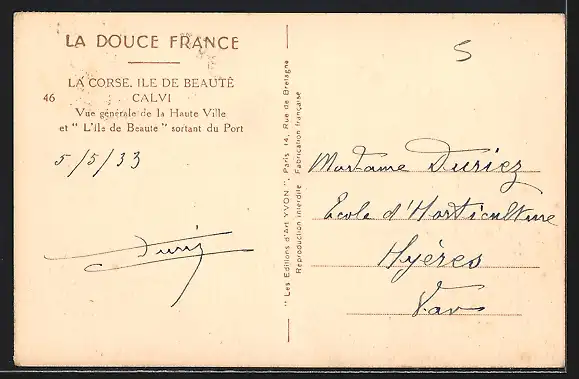 LA DOUCE FRANCE
LA CORSE. ILE DE BEAUTÉ
46 CALVI
Vue générale de la Haute Ville
et " L'Ile de Beaute " sortant du Port
5/5/33
Duriez
" Les Editions d'Art YVON ", Paris 14, Rue de Bretagne
Reproduction interdite Fabrication française
5
Madame Duriez
Ecole d'Horticulture
Hyères
Var